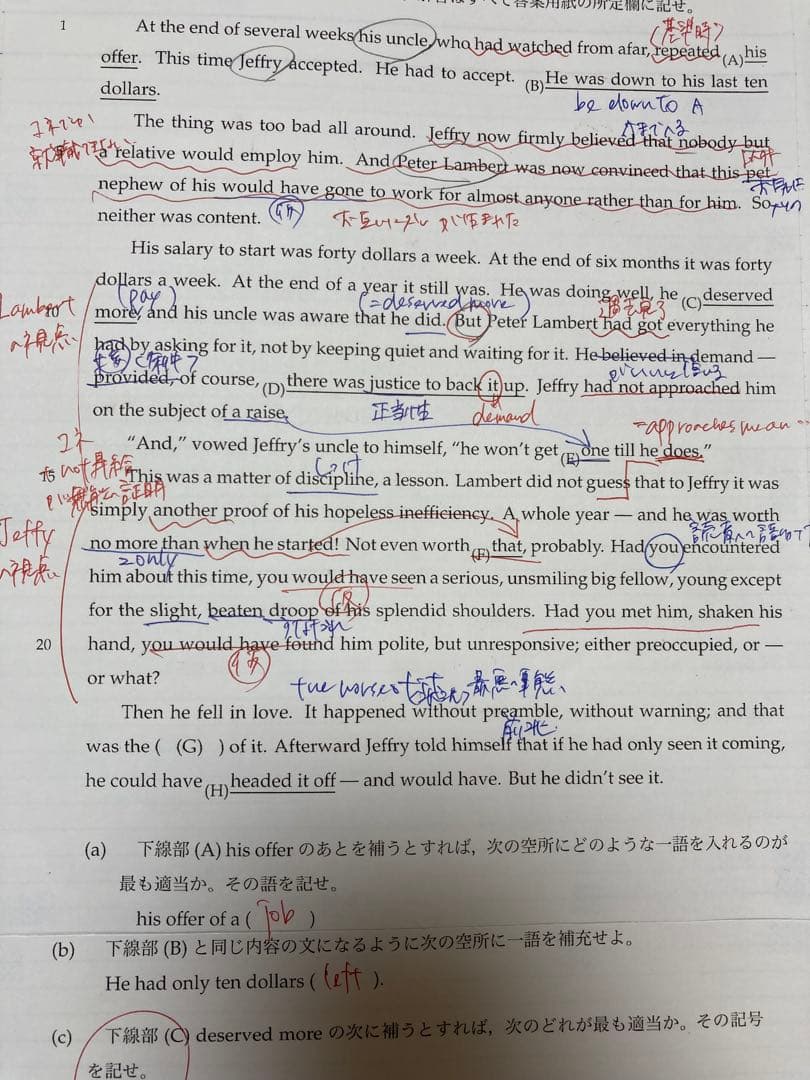 記せ。
1 At the end of several weeks his uncle, who had watched from afar, repeated (A)his
(基準時)
offer. This time Jeffry accepted. He had to accept. (B)He was down to his last ten
dollars.
be down to A
The thing was too bad all around. Jeffry now firmly believed that nobody but
a relative would employ him. And Peter Lambert was now convinced that this pet
nephew of his would have gone to work for almost anyone rather than for him. So
neither was content.
His salary to start was forty dollars a week. At the end of six months it was forty
dollars a week. At the end of a year it still was. He was doing well, he (C)deserved
(pay)
(=deserved more)
Lambert
more, and his uncle was aware that he did. But Peter Lambert had got everything he
had by asking for it, not by keeping quiet and waiting for it. He believed in demand —
provided, of course, (D)there was justice to back it up. Jeffry had not approached him
on the subject of a raise.
正当性
demand
=approaches mean
“And,” vowed Jeffry’s uncle to himself, “he won’t get (E)one till he does.”
しつけ
15 This was a matter of discipline, a lesson. Lambert did not guess that to Jeffry it was
simply another proof of his hopeless inefficiency. A whole year — and he was worth
Jeffy
no more than when he started! Not even worth (F)that, probably. Had you encountered
only
him about this time, you would have seen a serious, unsmiling big fellow, young except
for the slight, beaten droop of his splendid shoulders. Had you met him, shaken his
20 hand, you would have found him polite, but unresponsive; either preoccupied, or —
or what?
Then he fell in love. It happened without preamble, without warning; and that
was the ( (G) ) of it. Afterward Jeffry told himself that if he had only seen it coming,
he could have (H)headed it off — and would have. But he didn’t see it.
(a) 下線部 (A) his offer のあとを補うとすれば，次の空所にどのような一語を入れるのが
最も適当か。その語を記せ。
his offer of a ( job )
(b) 下線部 (B) と同じ内容の文になるように次の空所に一語を補充せよ。
He had only ten dollars ( left ).
(c) 下線部 (C) deserved more の次に補うとすれば，次のどれが最も適当か。その記号
を記せ。